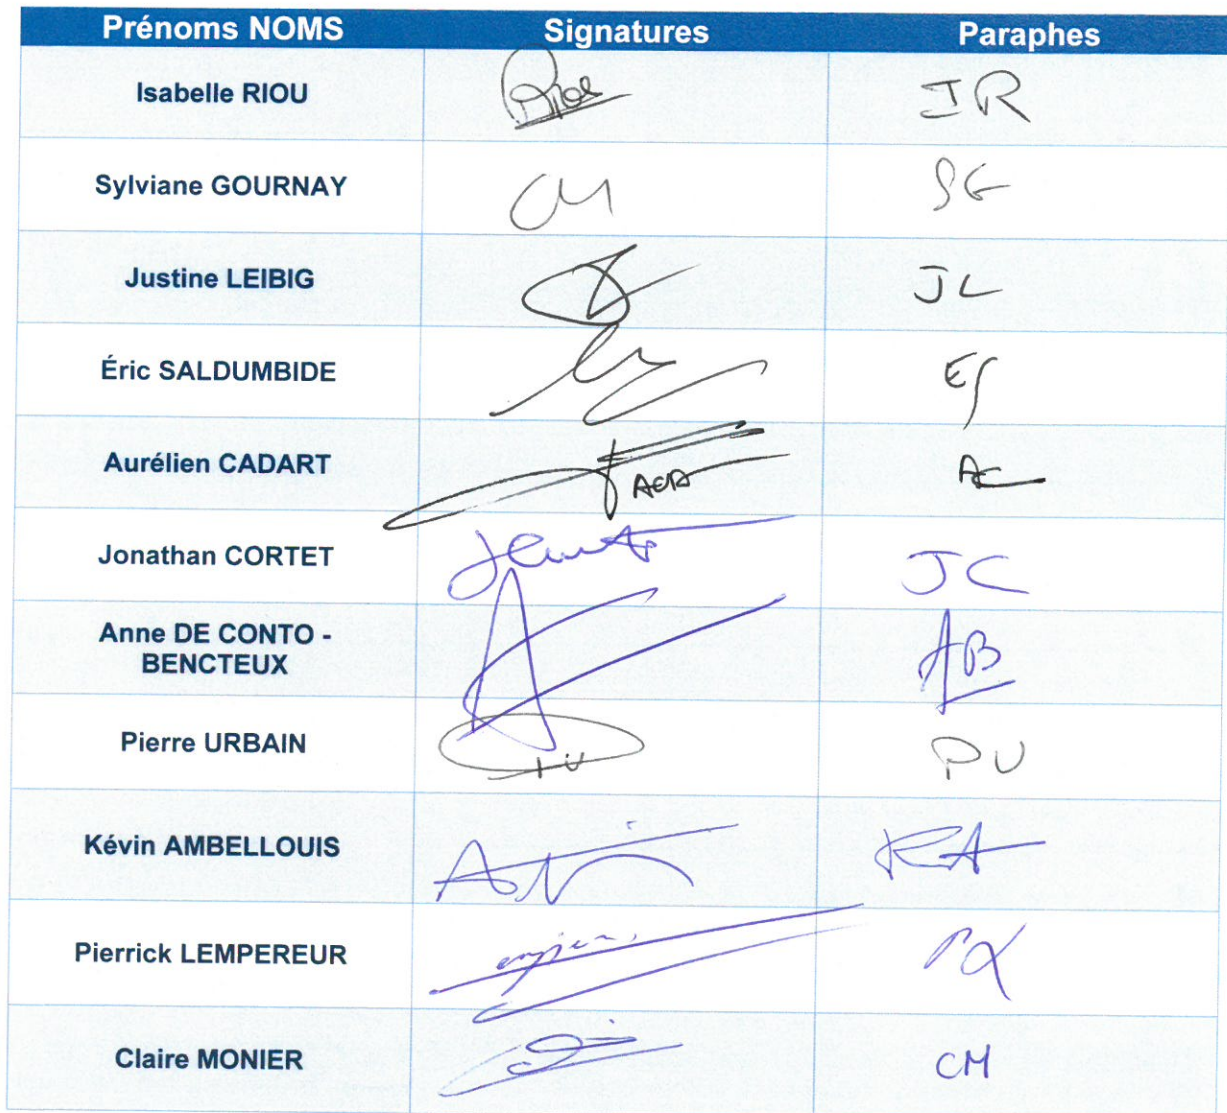 Prénoms NOMS Signatures Paraphes
Isabelle RIOU Riou IR
Sylviane GOURNAY SG
Justine LEIBIG JL
Éric SALDUMBIDE ES
Aurélien CADART AC
Jonathan CORTET JC
Anne DE CONTO -
BENCTEUX AB
Pierre URBAIN PU PU
Kévin AMBELLOUIS KA
Pierrick LEMPEREUR PL
Claire MONIER CM